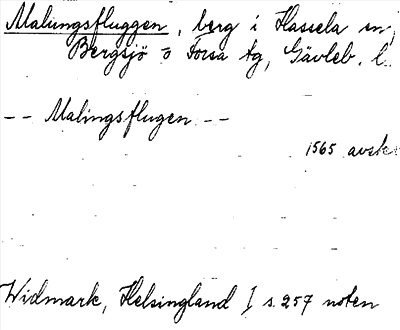 Malungsfluggen, berg i Hassela sn,
Bergsjö o Forsa tg, Gävleb. l.
-- Malingsflugen --
1565 avskr
Widmark, Helsingland I s. 257 noten